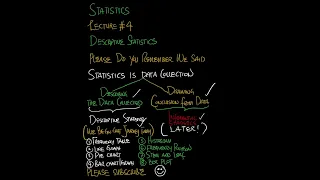 STATISTICS
LECTURE #4
DESCRIPTIVE STATISTICS
PLEASE DO YOU REMEMBER WE SAID
STATISTICS IS DATA COLLECTION
DESCRIBING
THE DATA COLLECTED
DRAWING
CONCLUSION FROM DATA
DESCRIPTIVE STRATEGY
(WE BEGIN OUR JOURNEY FROM)
INFERENTIAL
STATISTICS
(LATER!)
① FREQUENCY TABLE
② LINE GRAPH
③ PIE CHART
④ BAR CHART/GRAPH
⑤ HISTOGRAM
⑥ FREQUENCY POLYGON
⑦ STEM AND LEAF
⑧ BOX PLOT
PLEASE SUBSCRIBE